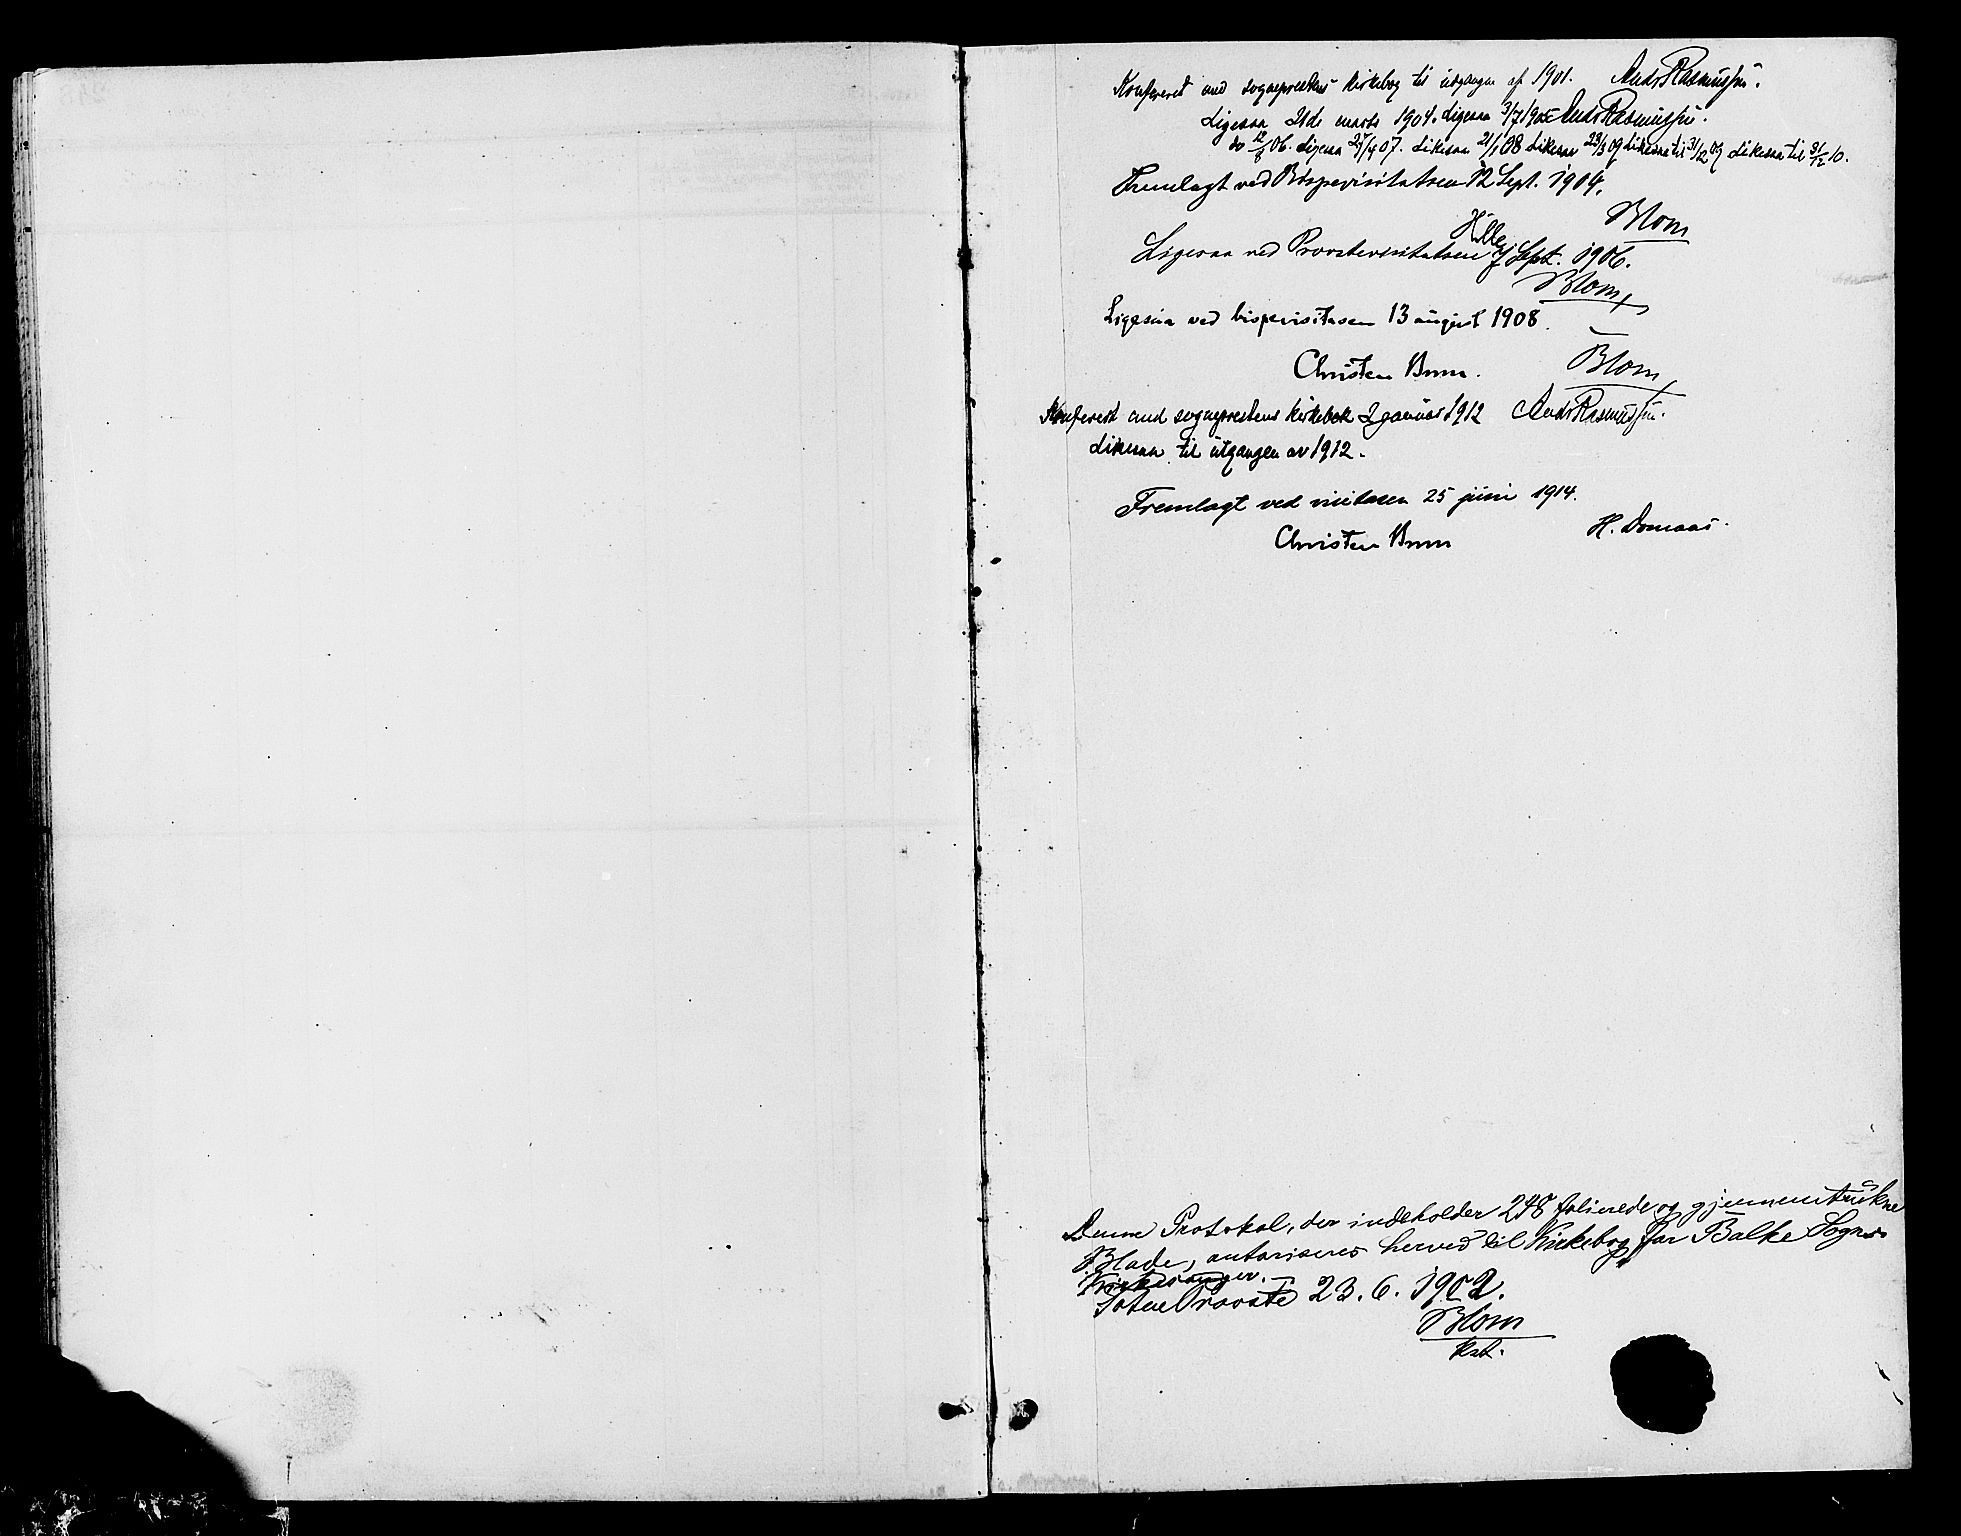 Konfereret med sogneprestens kirkebog til udgangen af 1901. Andr Rasmussen.
Ligesaa 21de marts 1904. Ligesaa 3/7 1905 Andr Rasmussen.
do 12/8 06. Ligesaa 27/4 07. Likesaa 21/1 08 Likesaa 23/3 09 Likesaa til 31/12 09 Likesaa til 31/12 10.
Fremlagt ved Bispevisitatsen 12 Sept. 1904.
Hille Blom
Ligesaa ved Provstevisitatsen 7 Sept. 1906.
Blom
Ligesaa ved bispevisitasen 13 august 1908.
Christen Brun. Blom
Konferert med sogneprestens kirkebok 2 januar 1912 Andr Rasmussen.
Likesaa til utgangen av 1912.
Fremlagt ved visitasen 25 juni 1914.
Christen Brun H. Domaas.
Denne Protokol, der indeholder 248 folierede og gjennemtrukne
Blade, autoriseres herved til Kirkebog for Balke Sogn
Toten Provsti 23. 6. 1902.
Blom
kst.